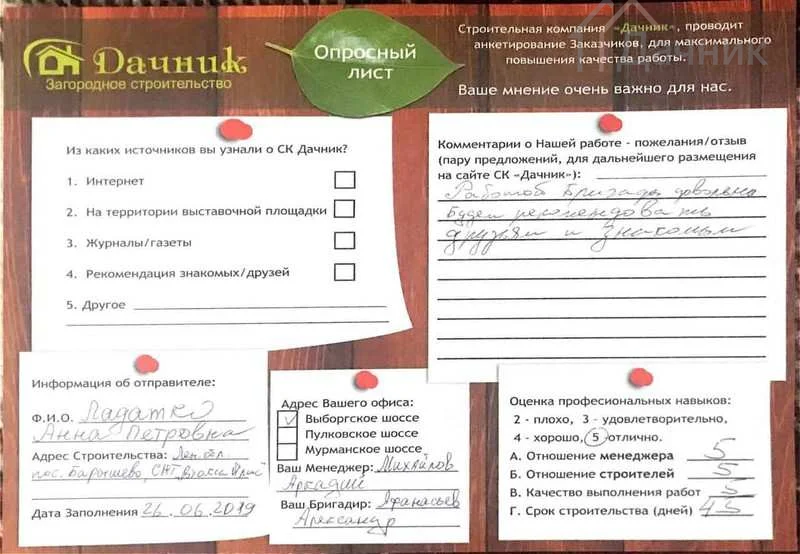 Дачник
Загородное строительство
Опросный
лист
Строительная компания «Дачник», проводит
анкетирование Заказчиков, для максимального
повышения качества работы.
Ваше мнение очень важно для нас.
Дачник
Из каких источников вы узнали о СК Дачник?
1. Интернет
2. На территории выставочной площадки
3. Журналы/газеты
4. Рекомендация знакомых/друзей
5. Другое
Комментарии о Нашей работе - пожелания/отзыв
(пару предложений, для дальнейшего размещения
на сайте СК «Дачник»):
Работой бригады довольна
Будем рекомендовать
друзьям и знакомым
Информация об отправителе:
Ф.И.О. Ладатко
Анна Петровна
Адрес Строительства: Лен. обл.
пос. Барышево, СНТ
Дата Заполнения 26.06.2019
Адрес Вашего офиса:
Выборгское шоссе
Пулковское шоссе
Мурманское шоссе
Ваш Менеджер: Михайлов
Аркадий
Ваш Бригадир: Афанасьев
Александр
Оценка профессиональных навыков:
2 - плохо, 3 - удовлетворительно,
4 - хорошо, 5 отлично.
А. Отношение менеджера 5
Б. Отношение строителей 5
В. Качество выполнения работ 5
Г. Срок строительства (дней) 45